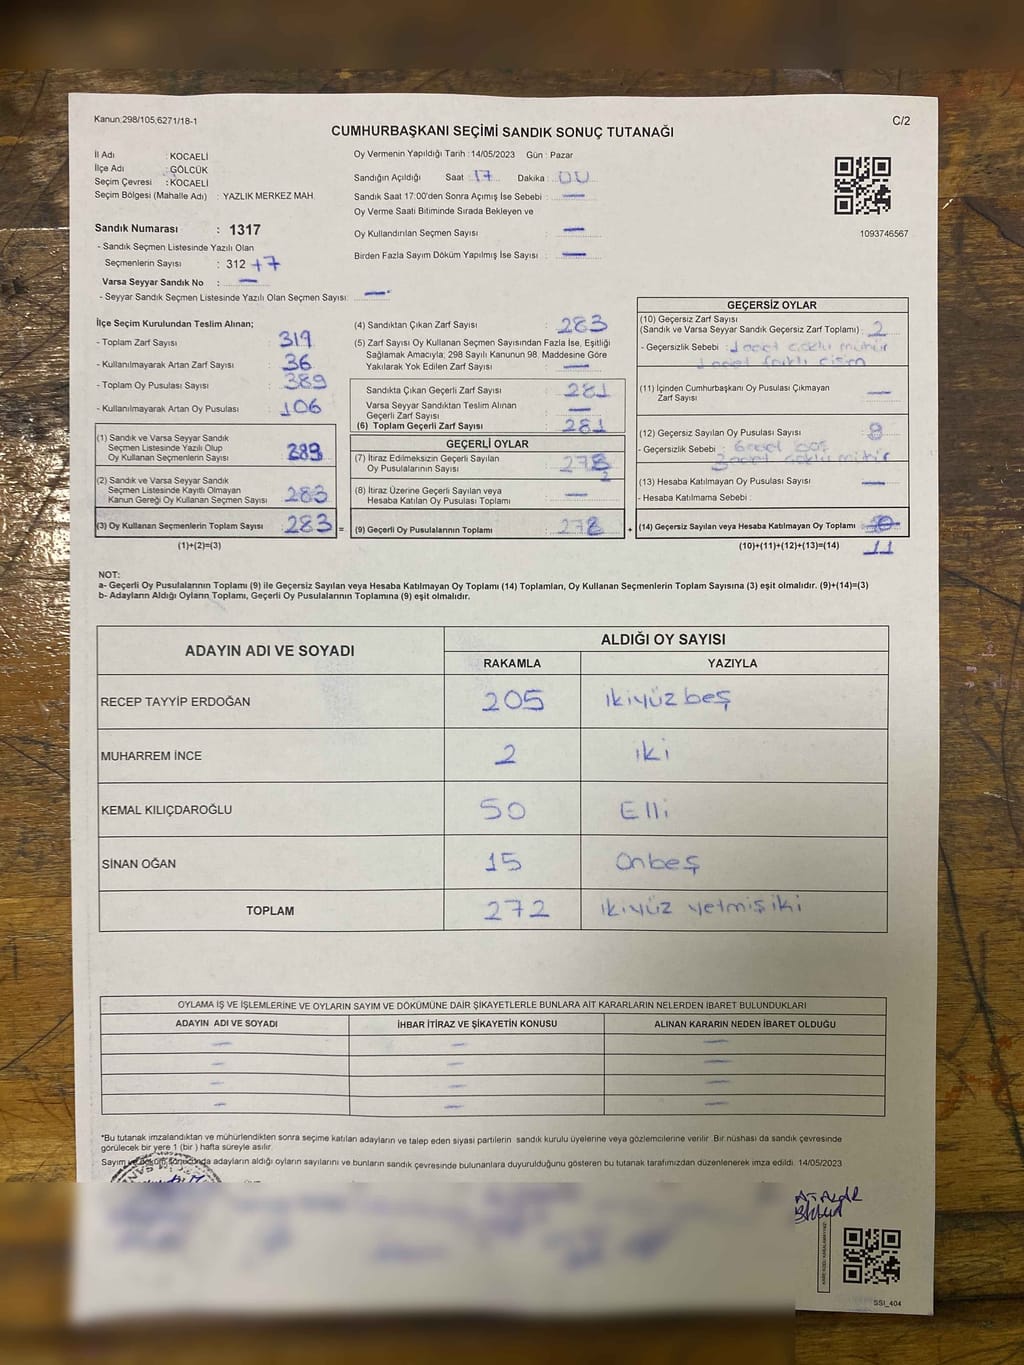 Kanun:298/105;6271/18-1
C/2
CUMHURBAŞKANI SEÇİMİ SANDIK SONUÇ TUTANAĞI
İl Adı : KOCAELİ
İlçe Adı : GÖLCÜK
Seçim Çevresi : KOCAELİ
Seçim Bölgesi (Mahalle Adı) : YAZLIK MERKEZ MAH.
Sandık Numarası : 1317
- Sandık Seçmen Listesinde Yazılı Olan
Seçmenlerin Sayısı : 312 +7
Varsa Seyyar Sandık No : —
- Seyyar Sandık Seçmen Listesinde Yazılı Olan Seçmen Sayısı: —
Oy Vermenin Yapıldığı Tarih : 14/05/2023 Gün : Pazar
Sandığın Açıldığı Saat : 17 Dakika : 00
Sandık Saat 17:00'den Sonra Açımış İse Sebebi : —
Oy Verme Saati Bitiminde Sırada Bekleyen ve
Oy Kullandırılan Seçmen Sayısı : —
Birden Fazla Sayım Döküm Yapılmış İse Sayısı : —
1093746567
İlçe Seçim Kurulundan Teslim Alınan;
- Toplam Zarf Sayısı : 319
- Kullanılmayarak Artan Zarf Sayısı : 36
- Toplam Oy Pusulası Sayısı : 389
- Kullanılmayarak Artan Oy Pusulası : 106
(1) Sandık ve Varsa Seyyar Sandık
Seçmen Listesinde Yazılı Olup
Oy Kullanan Seçmenlerin Sayısı :
(2) Sandık ve Varsa Seyyar Sandık
Seçmen Listesinde Kayıtlı Olmayan
Kanun Gereği Oy Kullanan Seçmen Sayısı : 283
(3) Oy Kullanan Seçmenlerin Toplam Sayısı : 283 =
(1)+(2)=(3)
(4) Sandıktan Çıkan Zarf Sayısı : 283
(5) Zarf Sayısı Oy Kullanan Seçmen Sayısından Fazla İse, Eşitliği
Sağlamak Amacıyla; 298 Sayılı Kanunun 98. Maddesine Göre
Yakılarak Yok Edilen Zarf Sayısı : —
Sandıkta Çıkan Geçerli Zarf Sayısı : 281
Varsa Seyyar Sandıktan Teslim Alınan
Geçerli Zarf Sayısı : —
(6) Toplam Geçerli Zarf Sayısı : 281
GEÇERLİ OYLAR
(7) İtiraz Edilmeksizin Geçerli Sayılan
Oy Pusulalarının Sayısı :
(8) İtiraz Üzerine Geçerli Sayılan veya
Hesaba Katılan Oy Pusulası Toplamı : —
(9) Geçerli Oy Pusulalarının Toplamı : +
GEÇERSİZ OYLAR
(10) Geçersiz Zarf Sayısı
(Sandık ve Varsa Seyyar Sandık Geçersiz Zarf Toplamı) : 2
- Geçersizlik Sebebi : 1 adet çoklu mühür
1 adet farklı cisim
(11) İçinden Cumhurbaşkanı Oy Pusulası Çıkmayan
Zarf Sayısı : —
(12) Geçersiz Sayılan Oy Pusulası Sayısı :
- Geçersizlik Sebebi : 6 adet boş
3 adet çoklu mühür
(13) Hesaba Katılmayan Oy Pusulası Sayısı : —
- Hesaba Katılmama Sebebi :
(14) Geçersiz Sayılan veya Hesaba Katılmayan Oy Toplamı :
(10)+(11)+(12)+(13)=(14) 11
NOT:
a- Geçerli Oy Pusulalarının Toplamı (9) ile Geçersiz Sayılan veya Hesaba Katılmayan Oy Toplamı (14) Toplamları, Oy Kullanan Seçmenlerin Toplam Sayısına (3) eşit olmalıdır. (9)+(14)=(3)
b- Adayların Aldığı Oyların Toplamı, Geçerli Oy Pusulalarının Toplamına (9) eşit olmalıdır.
ADAYIN ADI VE SOYADI ALDIĞI OY SAYISI
RAKAMLA YAZIYLA
RECEP TAYYİP ERDOĞAN 205 ikiyüz beş
MUHARREM İNCE 2 iki
KEMAL KILIÇDAROĞLU 50 Elli
SİNAN OĞAN 15 Onbeş
TOPLAM 272 ikiyüz yetmiş iki
OYLAMA İŞ VE İŞLEMLERİNE VE OYLARIN SAYIM VE DÖKÜMÜNE DAİR ŞİKAYETLERLE BUNLARA AİT KARARLARIN NELERDEN İBARET BULUNDUKLARI
ADAYIN ADI VE SOYADI İHBAR İTİRAZ VE ŞİKAYETİN KONUSU ALINAN KARARIN NEDEN İBARET OLDUĞU
— — —
— — —
— — —
— — —
*Bu tutanak imzalandıktan ve mühürlendikten sonra seçime katılan adayların ve talep eden siyasi partilerin sandık kurulu üyelerine veya gözlemcilerine verilir .Bir nüshası da sandık çevresinde
görülecek bir yere 1 (bir ) hafta süreyle asılır.
Sayım ve döküm sonucunda adayların aldığı oyların sayılarını ve bunların sandık çevresinde bulunanlara duyurulduğunu gösteren bu tutanak tarafımızdan düzenlenerek imza edildi. 14/05/2023
SSİ_404